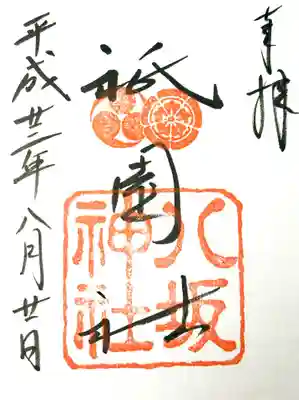 奉拝
祇園社
八坂
神社
平成廿三年八月廿日